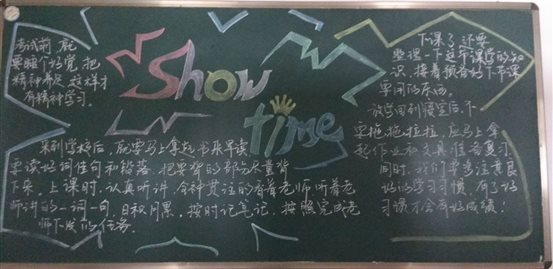 考试前,应
要睡个好觉,把
精神养足,这样才
有精神学习。
Show
time
来到学校后,应要马上拿起书来早读,
要读好词佳句和段落,把要背的部分尽量背
下来。上课时,认真听讲,全神贯注的看着老师听着老
师讲的一词一句,目和月累,按时记笔记,按照完成老
师下发的任务。
下课了,还要
整理一下这节课学的知
识,接着预备好下节课
要用的东西。
放学回到寝室后,不
要拖拖拉拉,应马上拿
起作业和文具准备复习
同时,我们要多注意良
好的学习习惯,有了好
习惯才会有好成绩。